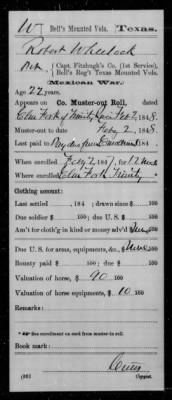 W Bell's Mounted Vols. Texas.
Robert Wheelock
Pvt., Capt. Fitzhugh's Co. (1st Service),
Bell's Reg't Texas Mounted Vols.
Mexican War.
Age 22 years.
Appears on Co. Muster-out Roll, dated
Elm Fork of Trinity, Feb 2, 1848.
Muster-out to date Feby 2, 1848.
Last paid to
When enrolled Feby 2, 1847, for 12 mos
Where enrolled Elm Fork Trinity
Clothing account:
Last settled , 184 ; drawn since $ 100
Due soldier $ 100; due U. S. $ 100
Am't for cloth'g in kind or money adv'd $ 100
Due U. S. for arms, equipments, &c., $ 100
Bounty paid $ 100; due $ 100
Valuation of horse, $ 90 100
Valuation of horse equipments, $ 10 100
Remarks:
* See enrollment on card from muster-in roll.
Book mark:
(361)
Copyist.